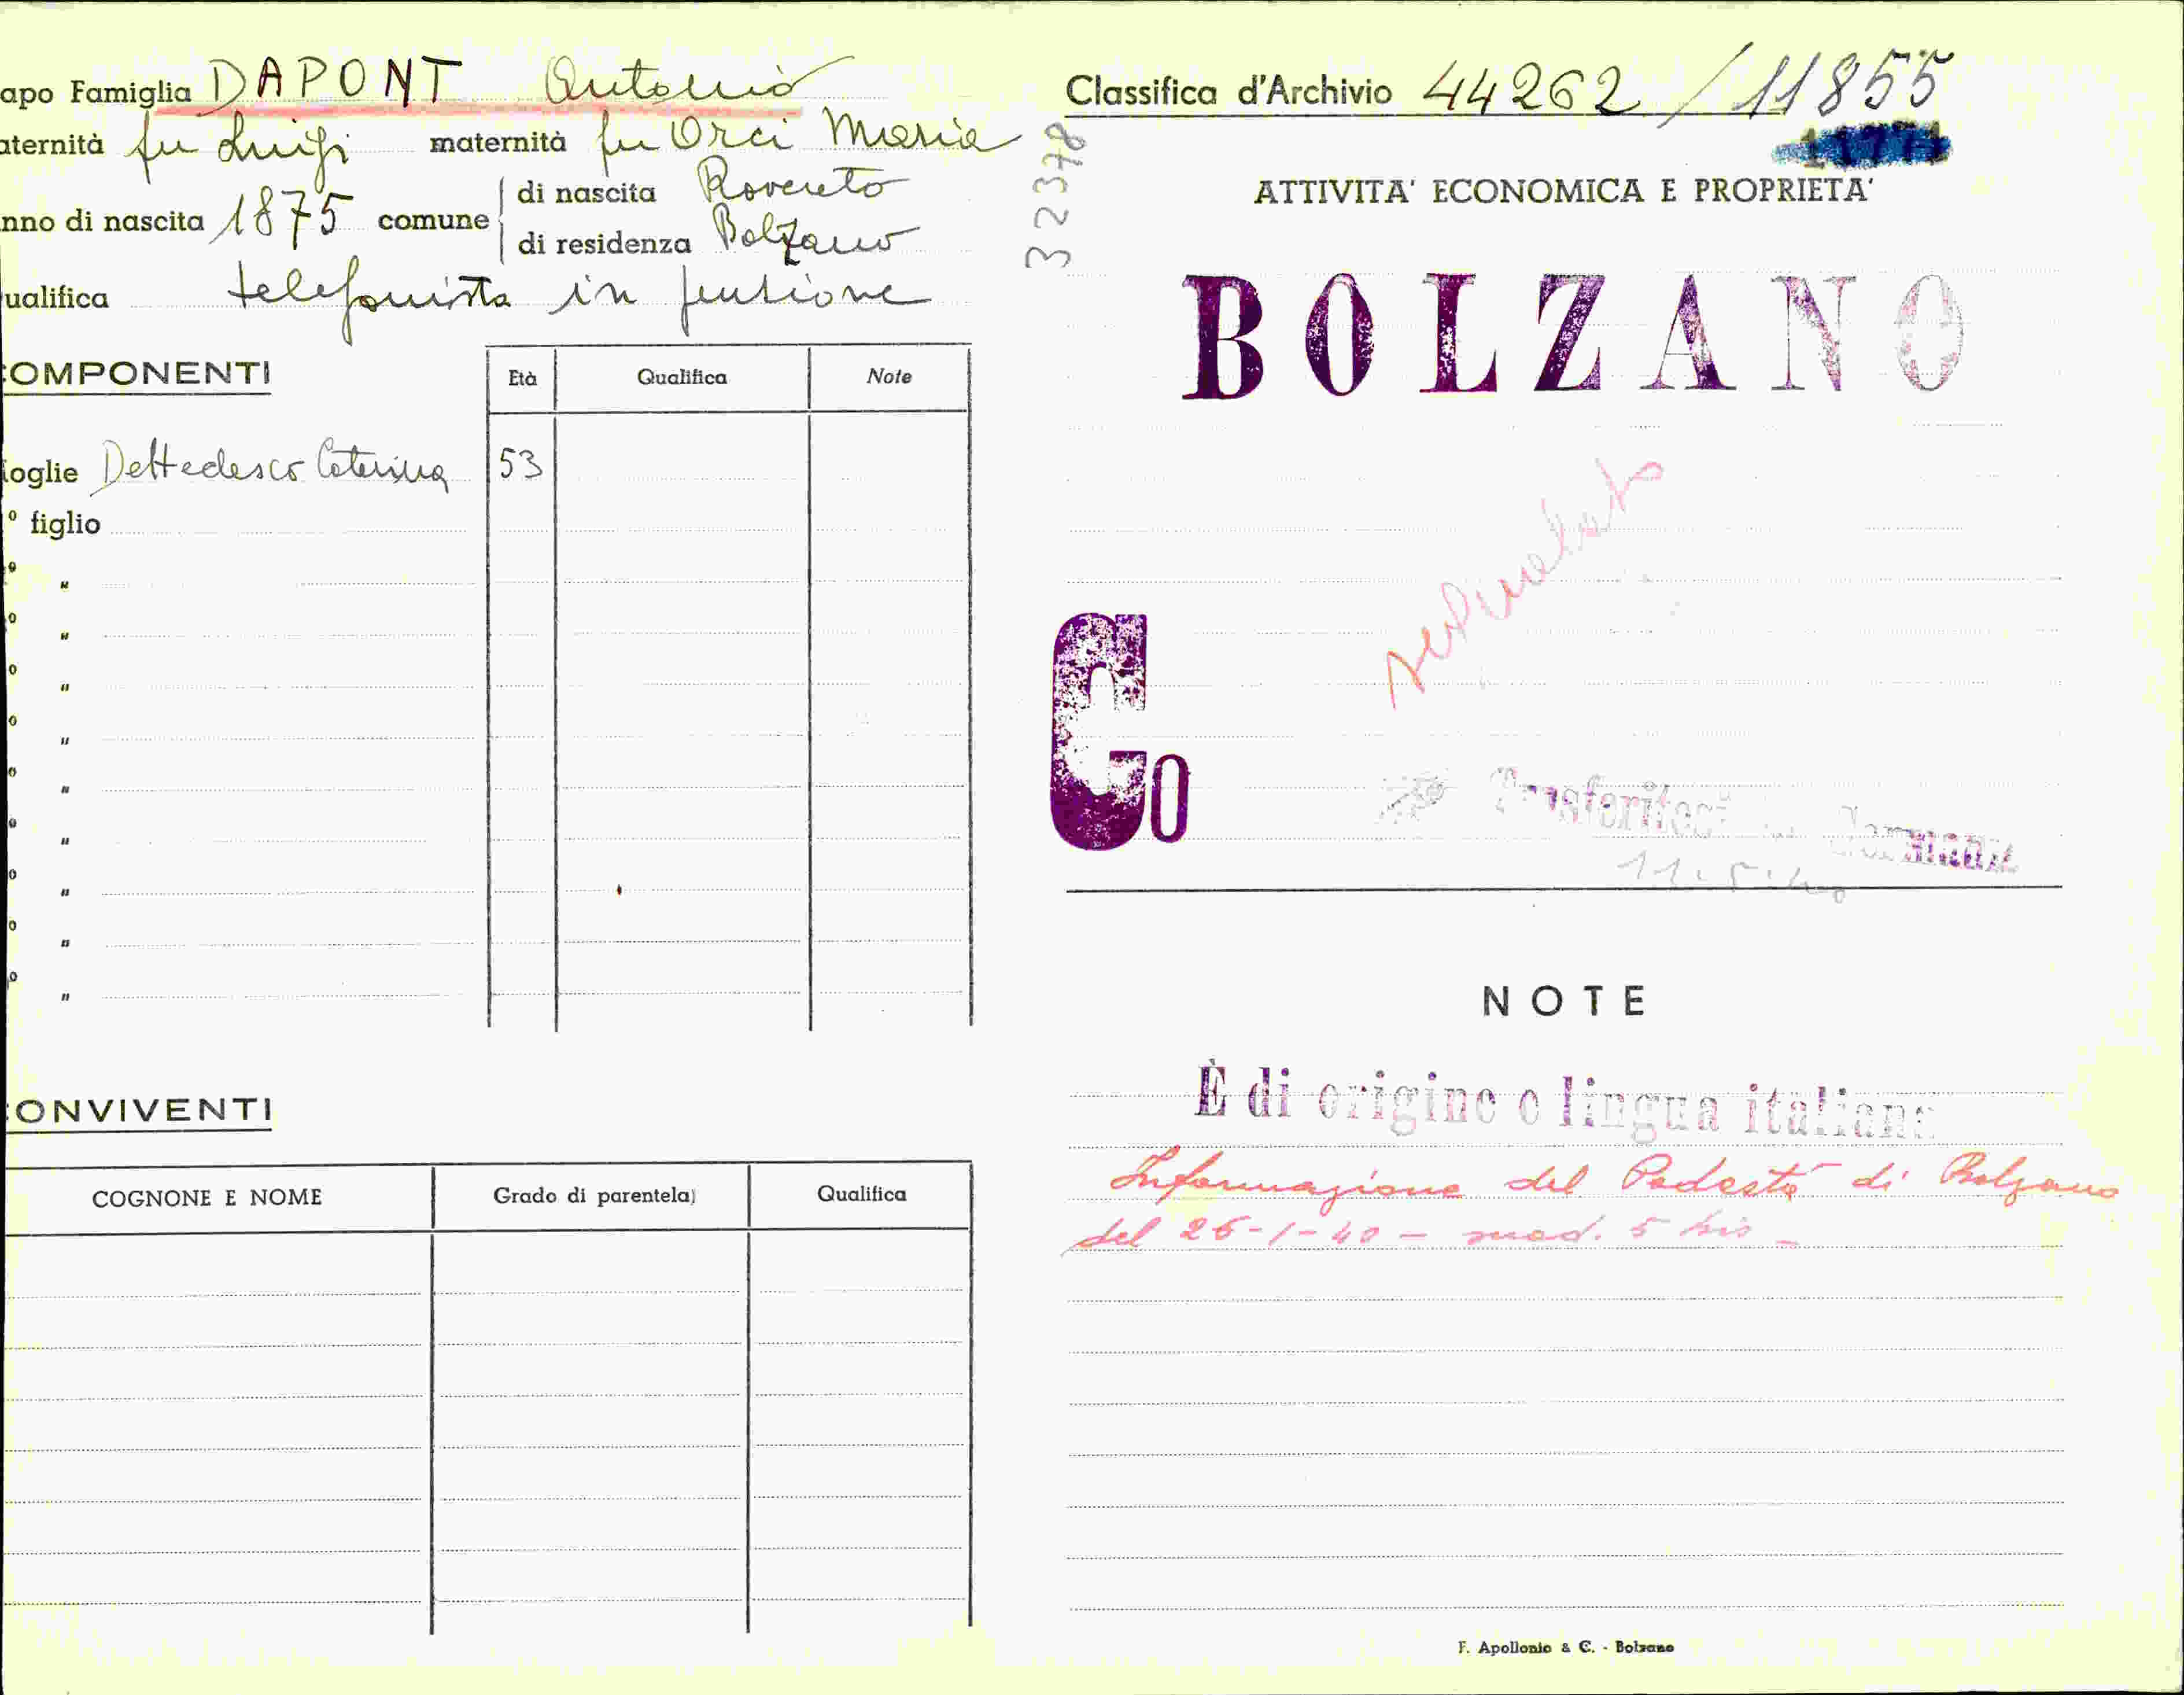 apo Famiglia DAPONT Antonio
aternità fu Luigi maternità fu Orci Maria
nno di nascita 1875 comune di nascita Rovereto
di residenza Bolzano
ualifica telefonista in pensione
COMPONENTI
Età Qualifica Note
oglie Deltedesco Caterina 53
º figlio
º "
º "
º "
º "
º "
º "
º "
º "
º "
CONVIVENTI
COGNONE E NOME Grado di parentela) Qualifica
Classifica d'Archivio 44262 / 11855
32378
ATTIVITA' ECONOMICA E PROPRIETA'
BOLZANO
Co
Trasferitosi in Germania
11.5.40
NOTE
È di origine e lingua italiana
Informazione del Podestà di Bolzano
del 26-1-40 - mod. 5 bis -
F. Apollonio & C. - Bolzano